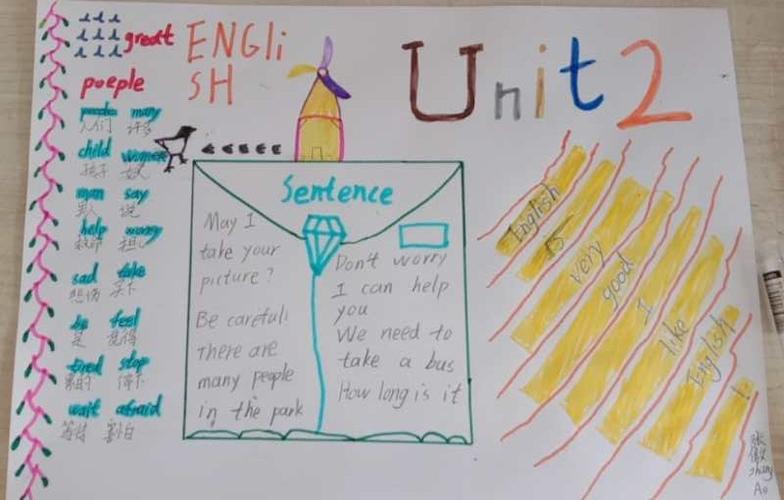 great
poeple
ENGLi
SH
Unit 2
people many
人们 许多
child woman
孩子 女人
man say
男人 说
help worry
救命 担心
sad take
悲伤 买下
be feel
是 觉得
tired stop
累的 停下
wait afraid
等待 害怕
Sentence
May I
take your
picture?
Be careful!
There are
many people
in the park
Don't worry
I can help
you
We need to
take a bus
How long is it
English
is
very
good
I
like
English
!
张